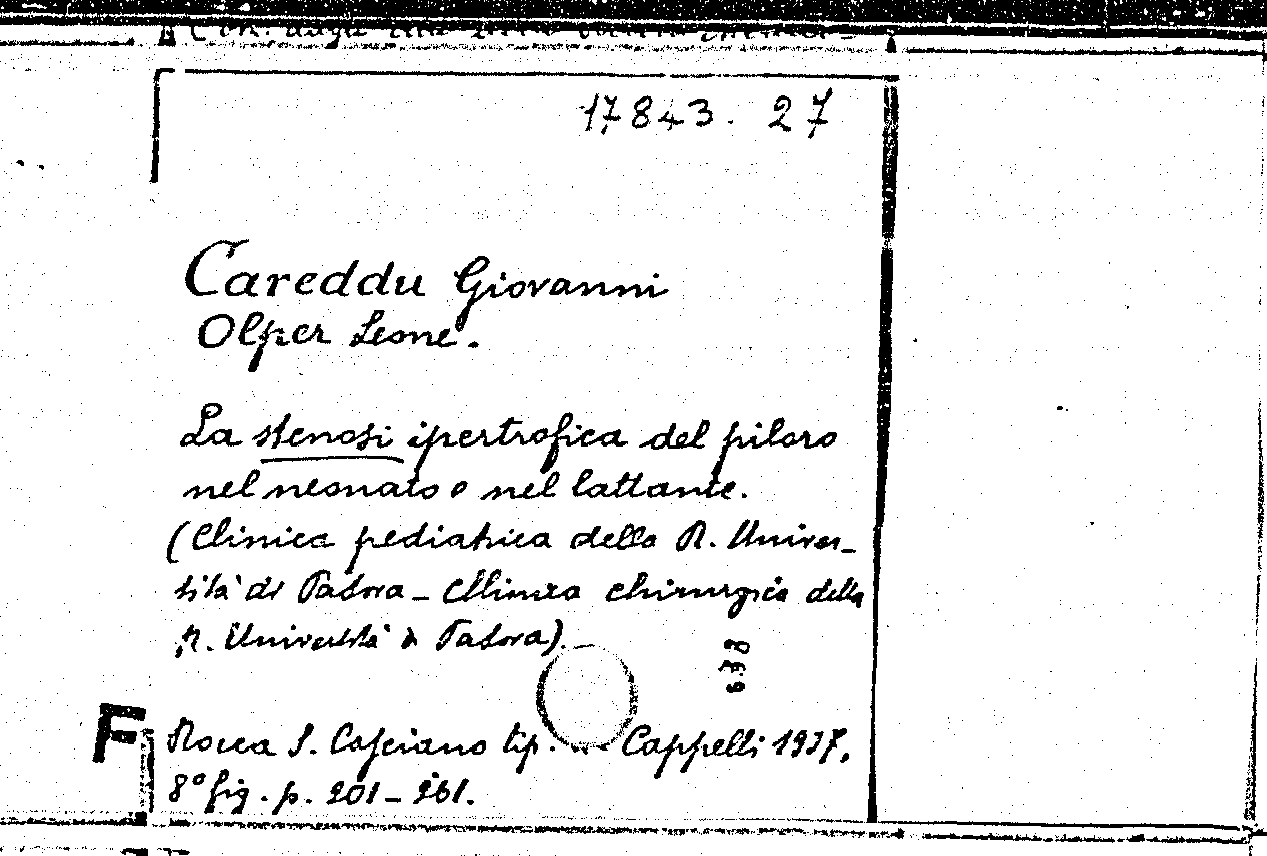 17843. 27
Careddu Giovanni
Olper Leone.
La stenosi ipertrofica del piloro
nel neonato e nel lattante.
(Clinica pediatrica della R. Univer-
sità di Padova - Clinica chirurgica della
R. Università di Padova).
638
F
Rocca S. Casciano tip. Cappelli 1937,
8° fig. p. 201-261.